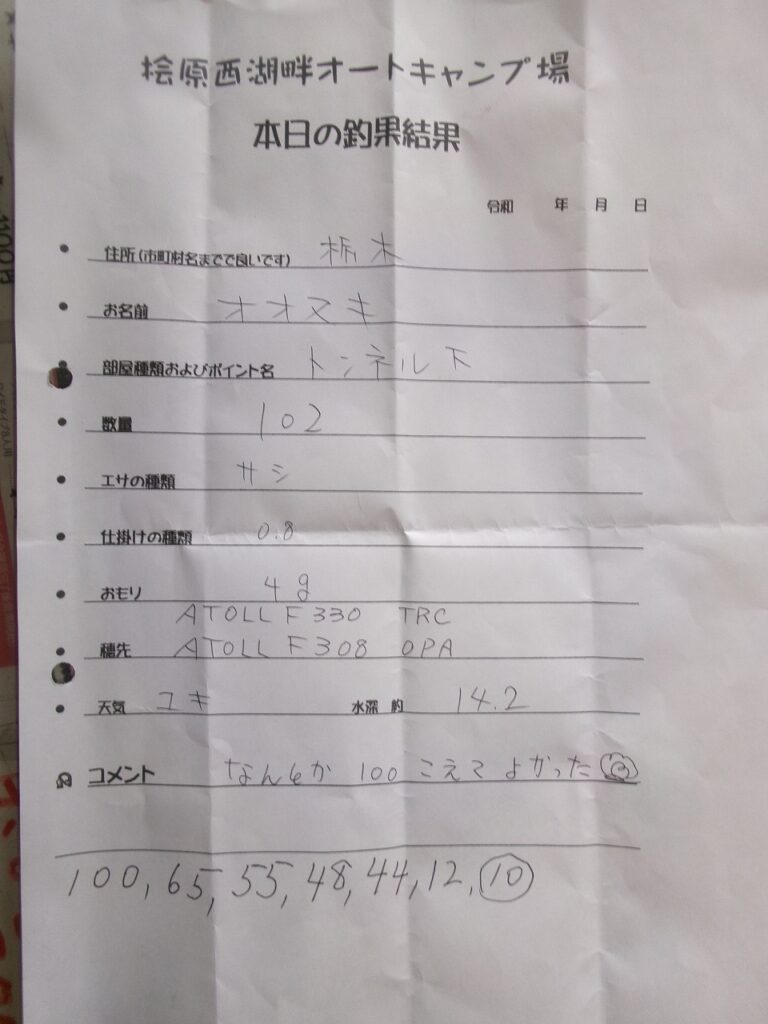 桧原西湖畔オートキャンプ場
本日の釣果結果
令和 年 月 日
住所(市町村名までで良いです) 栃木
お名前 オオヌキ
部屋種類およびポイント名 トンネル下
数量 102
エサの種類 サシ
仕掛けの種類 0.8
おもり 4g
ATOLL F330 TRC
穂先 ATOLL F308 OPA
天気 ユキ 水深 約 14.2
コメント なんとか 100 こえてよかった
100, 65, 55, 48, 44, 12, 10
1100円